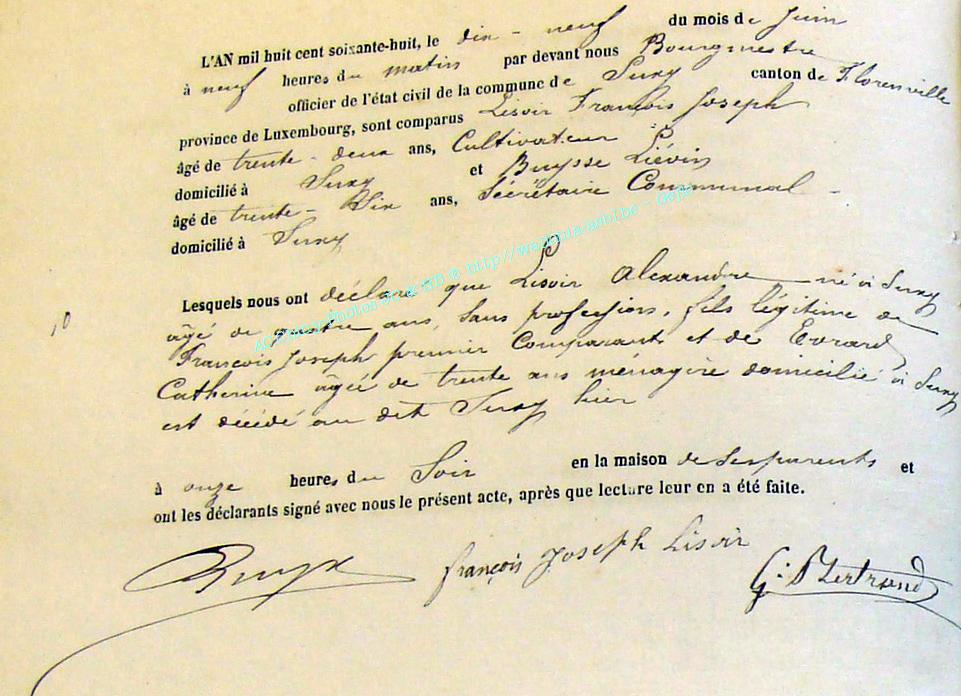 L'AN mil huit cent soixante-huit, le dix-neuf du mois de Juin
à neuf heures du matin par devant nous Bourgmestre
officier de l'état civil de la commune de Suxy canton de Florenville
province de Luxembourg, sont comparus Lisoir François Joseph
âgé de trente-deux ans, Cultivateur
domicilié à Suxy et Buysse Liévin
âgé de trente-Six ans, Sécrétaire Communal
domicilié à Suxy
Lesquels nous ont déclaré que Lisoir Alexandre né à Suxy
10
âgé de quatre ans, Sans profession, fils légitime de
François Joseph premier Comparant et de Evrard
Catherine âgée de trente ans ménagère domicilié à Suxy
est décédé au dit Suxy hier
à onze heures du Soir en la maison de Ses parents et
ont les déclarants signé avec nous le présent acte, après que lecture leur en a été faite.
François Joseph Lisoir